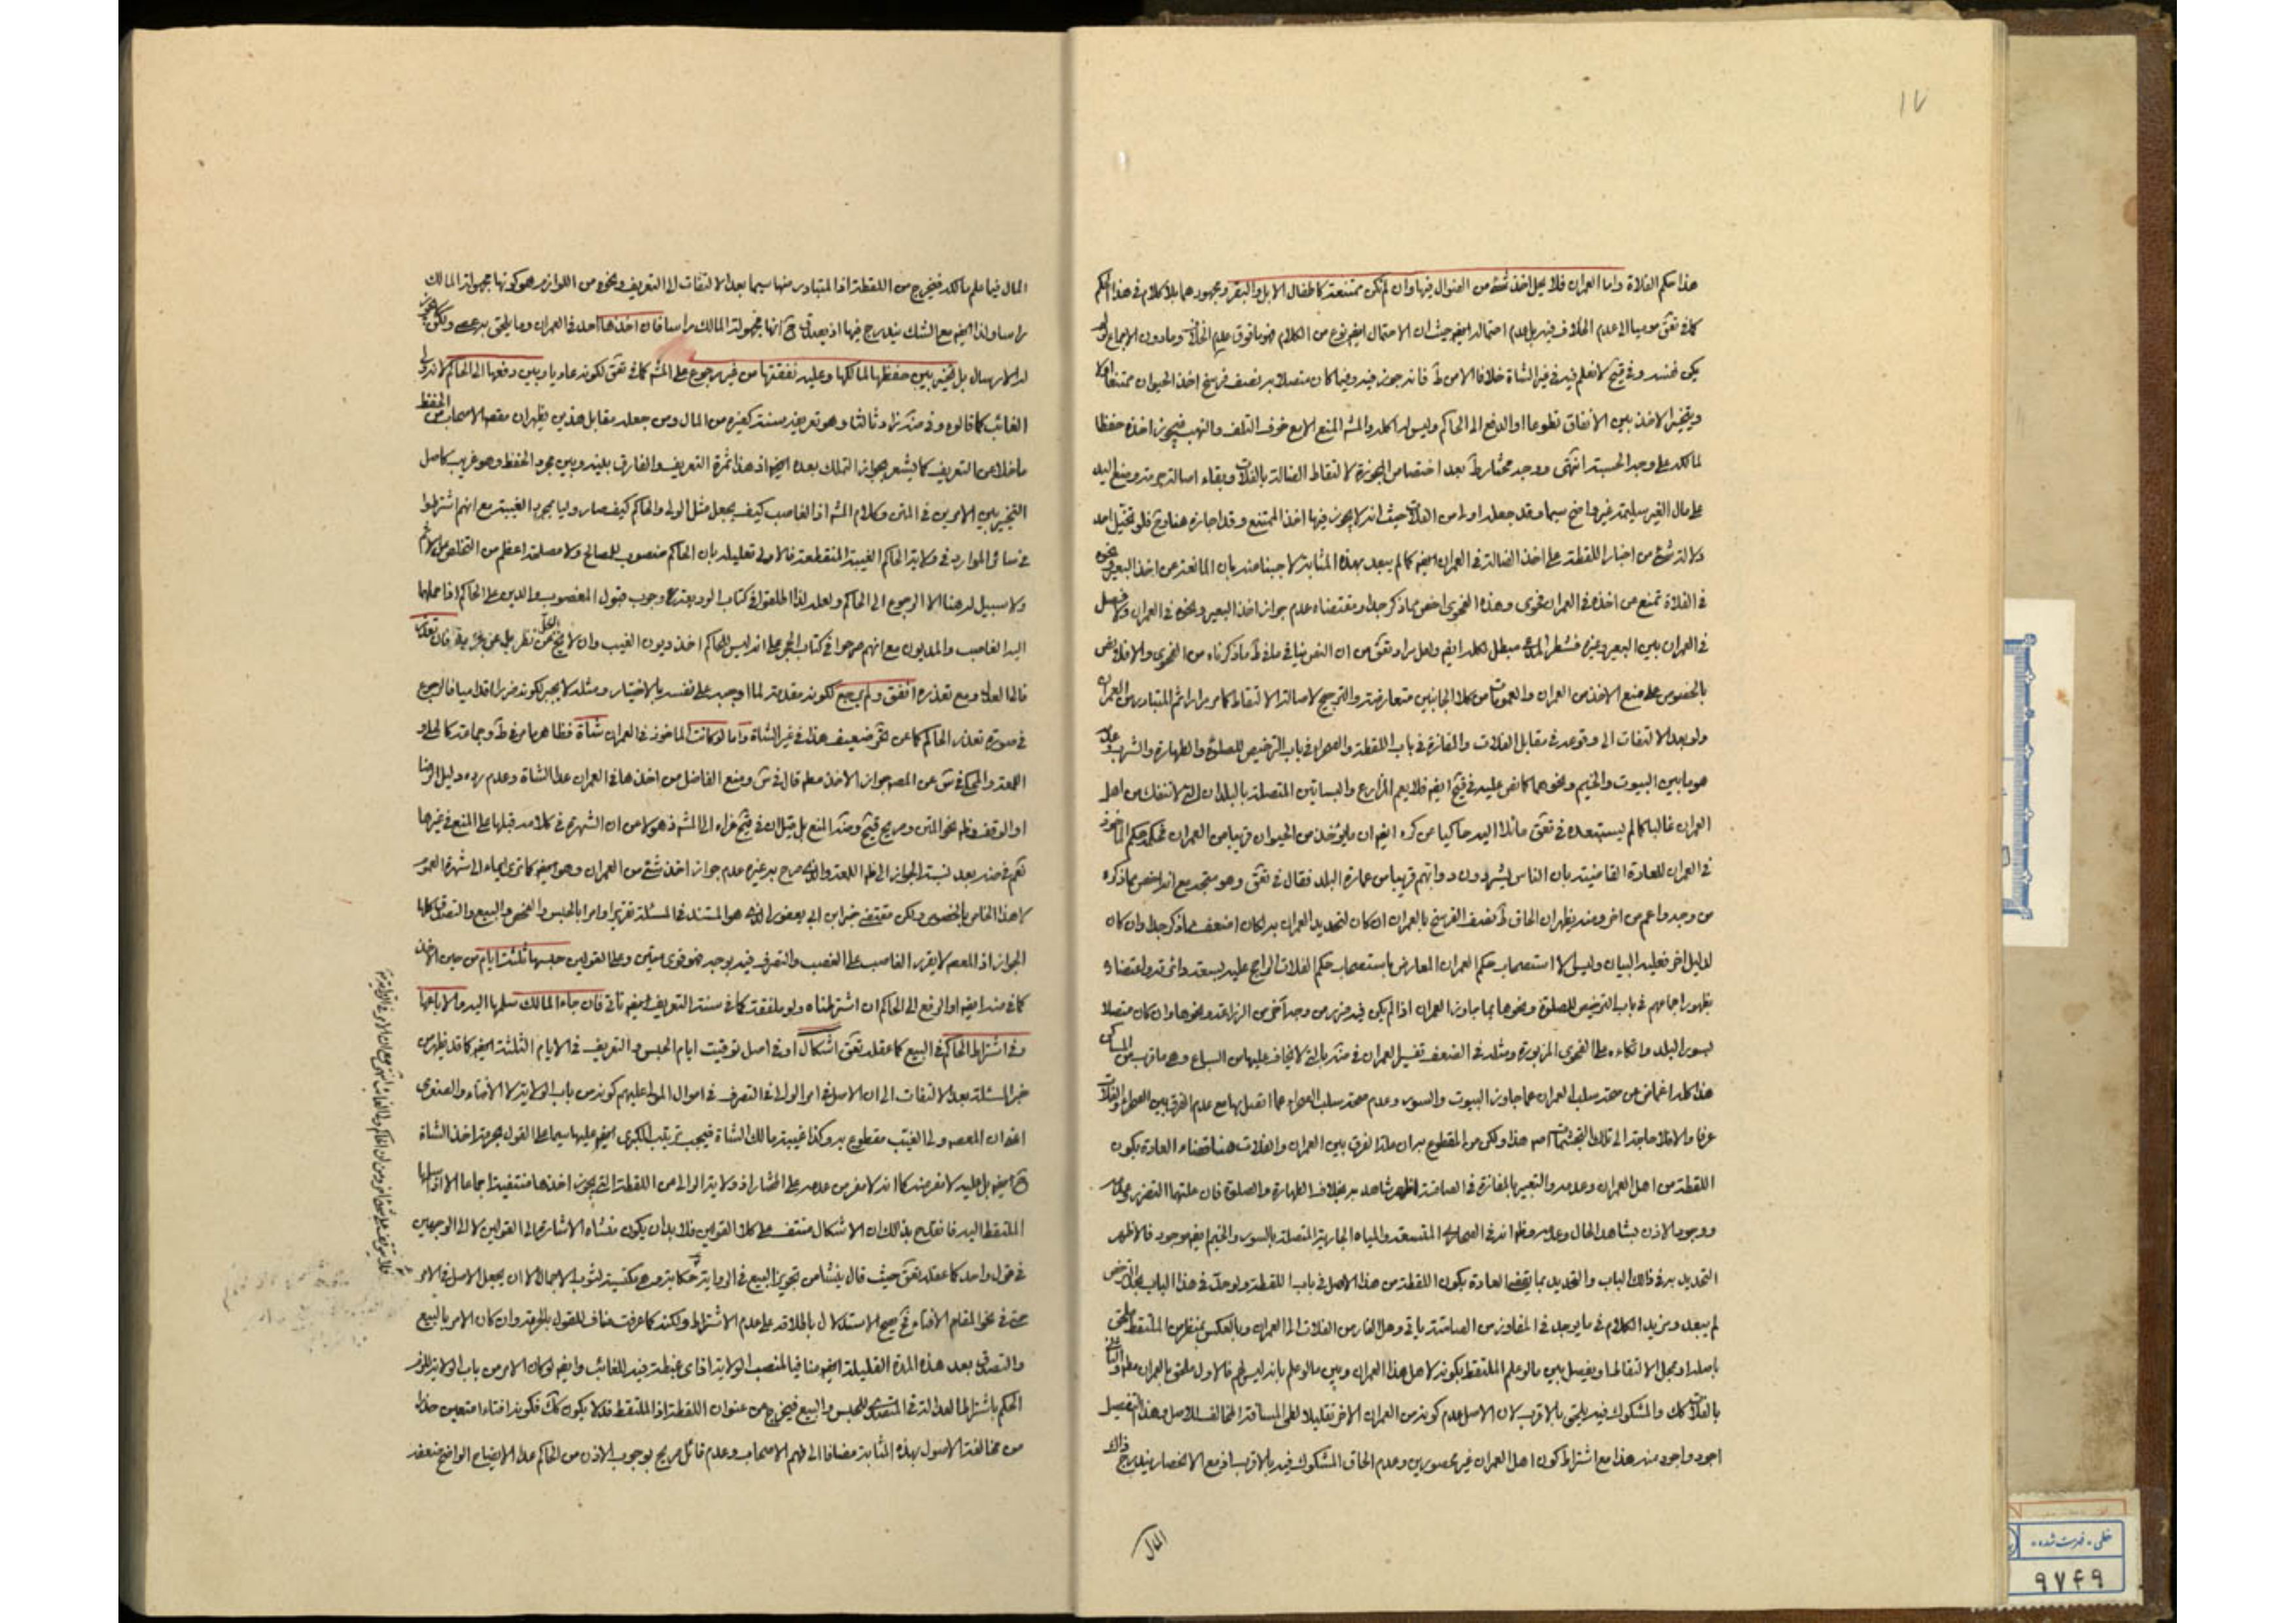 ١٧
هذا حكم الفلاة واما العمران فلا يحل اخذ شئ من الضوال فيها وان لم تكن ممتنعة كاطفال الابل والبقر وجمهورهما بلا كلام في هذا الحكم
كما في تعق مومیا الى عدم الخلاف فيه بل عدم احتماله ايضم حيث ان الاحتمال ايضم نوع من الكلام فهو ما فوق عدم الخلاف وما دون الاجماع
يكن خمسه وفي قبح لا نعلم فيه في غير الشاة خلافا الا من ط فانه جوز فيه وفيما كان متصلا به بنصف فرسخ اخذ الحيوان ممتنعا اولا
ويتخير الاخذ بين الأنفاق تطوعا او الدفع الى الحاكم وليس له اكله والمش المنع الا مع خوف التلف والنهب فيجوز اخذه حفظا
لمالكه على وجه الحسبة انتهى ووجه مختار ط بعد اختصاص المجوزة لالتقاط الضالة بالفلات وبقاء اصالة حرمة وضع اليد
على مال الغير سليمة غير واضح سيما وقد جعله اولى من الفلات حيث انه لا يجوز فيها اخذ الممتنع وقد اجازه هنا وح فلو تخيل احد
دلالة شئ من اخبار اللقطة على اخذ الضالة في العمران ايضم كما لم يبعد بهذه المثابة لاجبنا عنه بان المانعة من اخذ البعير ونحوه
في الفلاة تمنع من اخذه في العمران فحوى وهذه الفحوى اخص مما ذكر جدا ومقتضاه عدم جواز اخذ البعير ونحوه في العمران ولا فصل
في العمران بين البعير وغيره فشطر المدعى مبطل لكله ايضم ولعل مراد تعق من ان النص ينافي ما في ط ما ذكرناه من الفحوى والا فلا نص
بالخصوص على منع الاخذ من العمران والعمومات من كلا الجانبين متعارضة والترجيح لاصالة الالتقاط كما مر مرارا ثم المتبادر من العمران
ولو بعد الالتفات الى وقوعه في مقابل الفلات والمفازة في باب اللقطة والصحراء في باب الترخيص للصلوة والطهارة والشرب
هو ما بين البيوت والخيم ونحوهما كما نص عليه في قبح ايضم فلا يعم المزارع والبساتين المتصلة بالبلدان التي لا تنفك من اهل
العمران غالبا كما لم يستبعده في تعق مائلا اليه حاكيا عن كره ايضم ان ما يؤخذ من الحيوان قريبا من العمران حكمه حكم الماخوذ
في العمران للعادة القاضية بان الناس يسرحون دوابهم قريبا من عمارة البلد فقال في تعق وهو متجه مع انه اخص مما ذكره
من وجه واعم من اخر ومنه يظهر ان الحاق ط نصف الفرسخ بالعمران ان كان لتحديد العمران به لكان اضعف مما ذكر جدا وان كان
لدليل اخر فعليه البيان وليس الا استصحاب حكم العمران المعارض باستصحاب حكم الفلات الراجح عليه بسعة دائرته واعتضاده
بظهور اجماعهم في باب الترخيص للصلوة ونحوها بما جاوز العمران اذا لم يكن فيه ضرر من وجه آخر من الزراعة ونحوها وان كان متصلا
لسور البلد واتكاءه على الفحوى المزبورة ومثله في الضعف تفسير العمران في مثه بالتي لا يخاف عليها من السباع وهي ما قرب من المساكن
هذا كله اغماض عن صحة سلب العمران عما جاوز البيوت والسور وعدم صحة سلب الصحراء عما اتصل بها مع عدم الفرق بين الصحراء والفلات
عرفا والا فلا حاجة الى تلك التجشمات اصم هذا ولكن من المقطوع به ان مدار الفرق بين العمران والفلات هنا اقتضاء العادة بكون
اللقطة من اهل العمران وعدمه والتعبير بالمفازة في الصامتة اظهر شاهد به بخلاف الطهارة والصلوة فان علتها التضرر وعدمه
ووجود الاذن بشاهد الحال وعدمه وظم انه في الصحاري المتسعة والمياه الجارية المتصلة بالسور والخيم ايضم موجود فالاظهر
التحديد به في ذلك الباب والتحديد بما يقتضي العادة بكون اللقطة من هذا الاهل في باب اللقطة ولو حد في هذا الباب بحد الترخص
لم يبعد ومزيد الكلام في ما يوجد في المفاوز من الصامتة ياتي وهل الفار من الفلات الى العمران وبالعكس بنظر الملتقط ملحق
باصله او محل الالتقاط او يفصل بين ما لو علم الملتقط بكونه لاهل هذا العمران وبين ما لو علم بانه ليس لهم فالاول ملحق بالعمران مطم والثاني
بالفلات كك والمشكوك فيه يلحق بالاقرب لان الاصل عدم كونه من العمران الاخر تقليلا لطي المسافة المخالف للاصل وهذا التفصيل
اجود واجود منه هذا مع اشتراط كون اهل العمران غير محصورين وعدم الحاق المشكوك فيه بالاقرب اذ مع الانحصار يندرج ذلك
المال
المال فيما علم مالكه فيخرج من اللقطة اذ المتبادر منها سيما بعد الالتفات الى التعريف ونحوه من اللوازم هو كونها مجهولة المالك
راسا ولذا ايضم مع الشك يندرج فيها اذ يصدق ح انها مجهولة المالك راسا فان اخذها احد في العمران وما يلحق به عصى ولكن لا يجوز
له الارسال بل تخير بين حفظها لمالكها وعليه نفقتها من غير رجوع على المش كما في تعق لكونه عاديا وبين دفعها الى الحاكم لانه ولى
الغائب كما قالوه وفي مثه زاد ثالثا وهو تعريفه سنة كغيره من المال ومن جعله مقابل هذين يظهر ان مقصد الاصحاب من الحفظ
ما خلا عن التعريف كما يشعر بجواز التملك بعده ايضم اذ هذا ثمرة التعريف والفارق بينه وبين مجرد الحفظ وهو غريب كاصل
التخيير بين الامرين في المتن وكلام المش اذ الغاصب كيف يجعل مثل الولي والحاكم كيف صار وليا بمجرد الغيبة مع انهم اشترطوا
في سائر الموارد في ولاية الحاكم الغيبة المنقطعة فالاولى تعليله بان الحاكم منصوب للمصالح ولا مصلحة اعظم من التخلص من الاثم
ولا سبيل له هنا الا الرجوع الى الحاكم ولعله لذا اطلقوا في كتاب الوديعة وجوب قبول المغصوب والدين على الحاكم اذا حملهما
اليه الغاصب والمديون مع انهم صرحوا في كتاب الحجر على انه ليس للحاكم اخذ ديون الغيب وان لا يخ عن نظر بل عن غرابة فان تعذر
فالعدل ومع تعذره انفق ولم يرجع لكونه مقدمة لما اوجبه على نفسه بالاختيار ومثله لا يجبر لكونه ضررا اقداميا فالرجوع
في صورة تعذر الحاكم كما عن تعق ضعيف هذا في غير الشاة واما لو كانت الماخوذ في العمران شاة فظاهر ما من في ط وجماعة كالحلى و
اللمعة والمحكي في س عن المصم جواز الاخذ مطم قال في س ومنع الفاضل من اخذها في العمران عدا الشاة وعدم رده دليل الرضا
او الوقف وظم نحو المتن وصريح قبح ومثه المنع بل قيل ان في قبح عزاه الى المش
نعم في مثه بعد نسبة الجواز الى ظم اللمعة والذي صرح به غيره عدم جواز اخذ شئ من العمران وهو ايضم كما ترى ايماء الى شهرة العموم
لا هذا الخاص بالخصوص ولكن مقتضى خبر ابن ابي يعفور الذي هو المستند في المسئلة تقريرا وامرا بالحبس والفحص والبيع والتصدق كلها
الجواز اذ المعصم لا يقرر الغاصب على الغصب والتصرف فيه بوجه فهو قوى متين وعلى القولين حبسها ثلثة ايام من حين الاخذ
كما في مثه ايضم او الرفع الى الحاكم ان اشترطناه ولو ملفقة كما في سنة التعريف ايضم تأتي فان جاء المالك سلمها اليه والا باعها
وفي اشتراط الحاكم في البيع كما عقله تعق اشكال او في اصل توقيت ايام الحبس والتعريف في الايام الثلثة ايضم كما قد يظهر من
خبر المسئلة بعد الالتفات الى ان الاصل في اوامر الولاة في التصرف في اموال المولى عليهم كونه من باب الولاية لا الأفتاء والصغرى
اعنى ان المعصم ولى الغيب مقطوع به وكذا غيبة مالك الشاة فيجب ترتب الكبرى ايضم عليها سيما على القول بحرمة اخذ الشاة
ح ايضم بل عليه لا مفر منه كما انه لا مفر من عدمه على المختار اذ ولاية الوالي من اللقطة التي يجوز اخذها منتفية اجماعا الا اذا سلمها
الملتقط اليه فانقدح بذلك ان الاشكال منتف على كلا القولين فلا بد ان يكون منشاء الاشارة الى القولين لا الى الوجهين
في قول واحد كما عقله تعق حيث قال ينشأ من تجويز البيع في الرواية حكاية وهي مكتسية لثوب الاجمال الا ان يجعل الاصل في الامر
حتى في نحو المقام الافتاء فح صح الاستدلال باطلاقه على عدم الاشتراط ولكنه كما عرفت مناف للقول بالحرمة وان كان الامر بالبيع
والتصدق بعد هذه المدة القليلة ايضم منافيا لمنصب الولاية اذ اي غبطة فيه للغائب وايضم لو كان الامر من باب الولاية للزم
الحكم باشتراط العدالة في المتصدى للحبس والبيع فيخرج عن عنوان اللقطة اذ الملتقط قد لا يكون كك فكونه افتاء امتعين حذرا
من مخالفة الاصول بهذه المثابة مضافا الى فهم الاصحاب وعدم قائل صريح بوجوب الاذن من الحاكم عدا الايضاح الواضح ضعفه
خطى ـ فهرست شده
٩٧۴٩